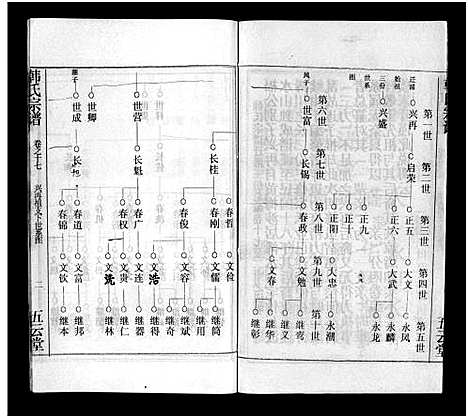 迁浦
始祖
三份
世系
图
第一世
兴再
兴盛
第二世
启荣
第三世
正五
正六
正九
正十
正阳
第四世
大文
大武
大忠
第五世
永凤
永麟
永龙
永潮
第六世
世富
第七世
长锡
第八世
春政
第九世
文勉
文春
第十世
继鸾
继义
继华
继彰
长桂
春哲
春刚
春俊
文俭
文儒
文容
继简
继用
继斌
继奇
世营
长魁
春广
春权
文浩
文连
文贵
继得
继器
继仁
世卿
世成
长旭
春道
春锦
文富
文钦
继林
继邦
继本
韩氏宗谱
卷之十七
兴再祖文下世系图
五云堂
五云堂